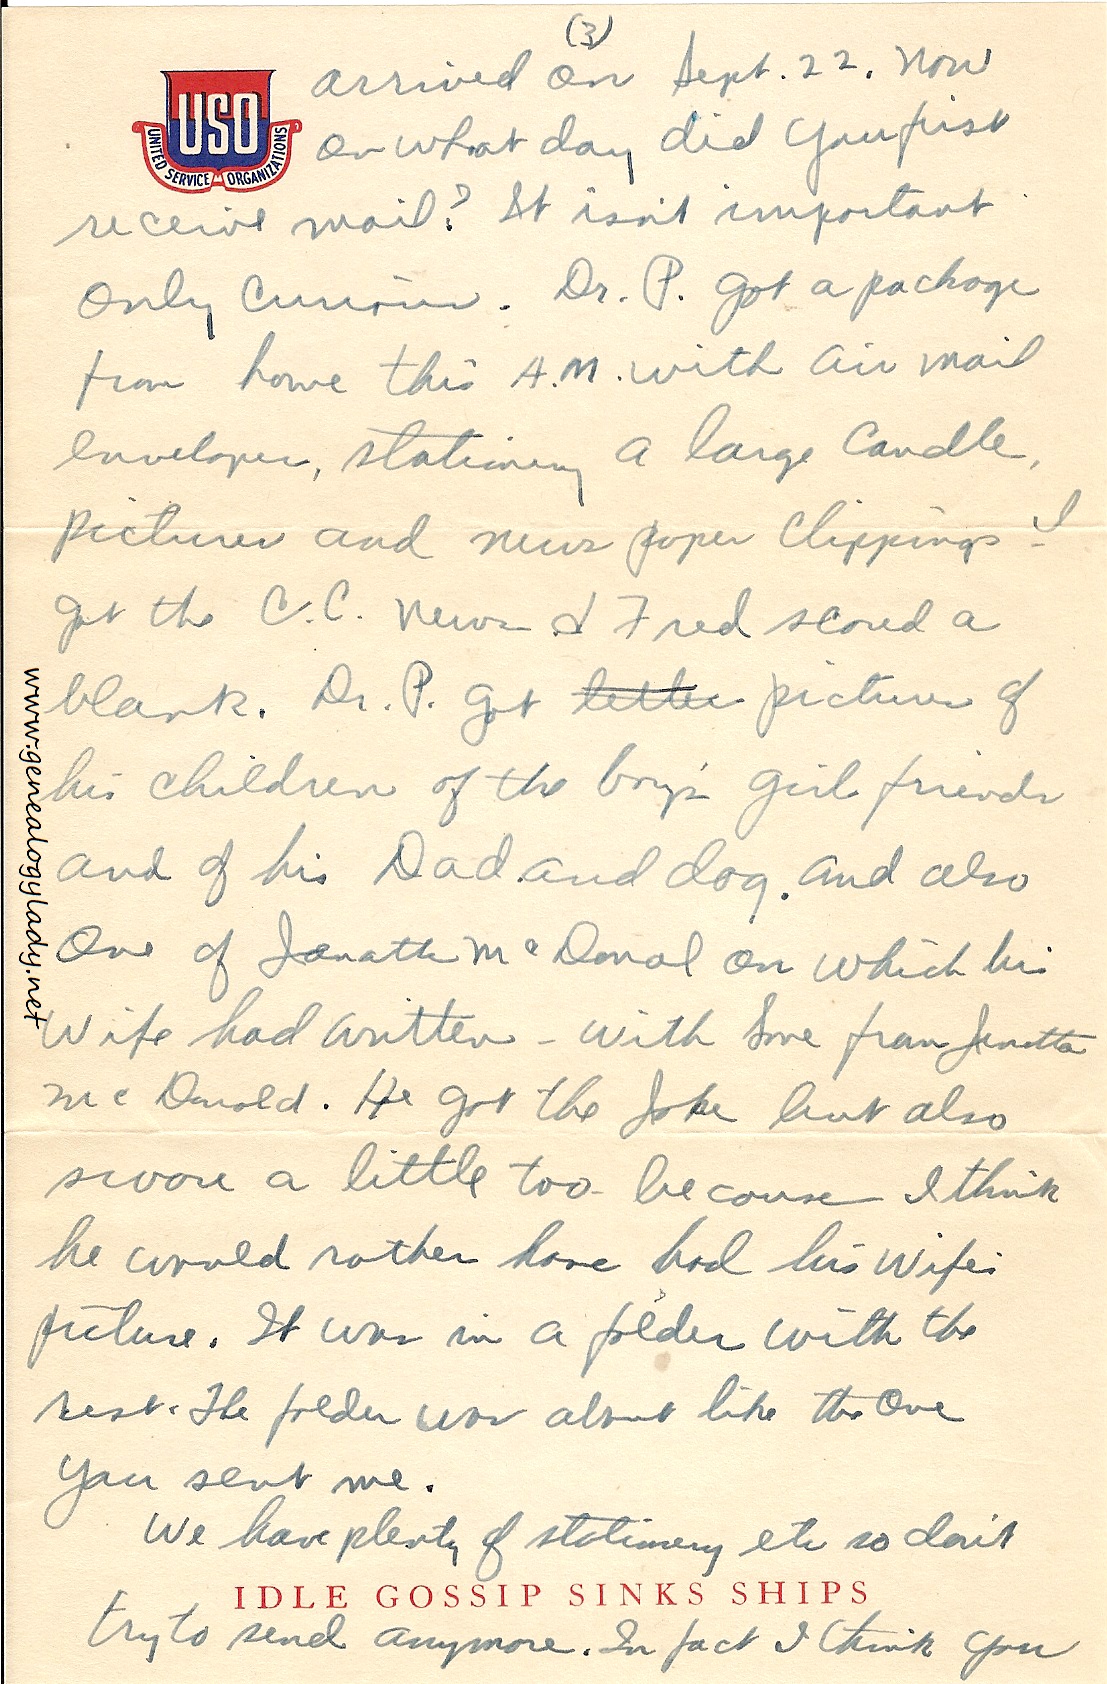 (3)
USO
UNITED SERVICE ORGANIZATIONS
arrived on Sept. 22. Now
on what day did you first
receive mail? It isn't important
only curious. Dr. P. got a package
from home this A.M. with air mail
envelopes, stationery a large candle,
pictures and news paper clippings - I
got the C.C. News & Fred scored a
blank. Dr. P. got letter pictures of
his children of the boy's girl friends
and of his Dad and dog. and also
One of Janatte McDonal on which his
Wife had written - with love from Janatta
McDonald. He got the joke but also
swore a little too because I think
he would rather have had his wife's
picture. It was in a folder with the
rest. The folder was about like the one
you sent me.
We have plenty of stationery etc so don't
IDLE GOSSIP SINKS SHIPS
try to send anymore. In fact I think you
www.genealogylady.net